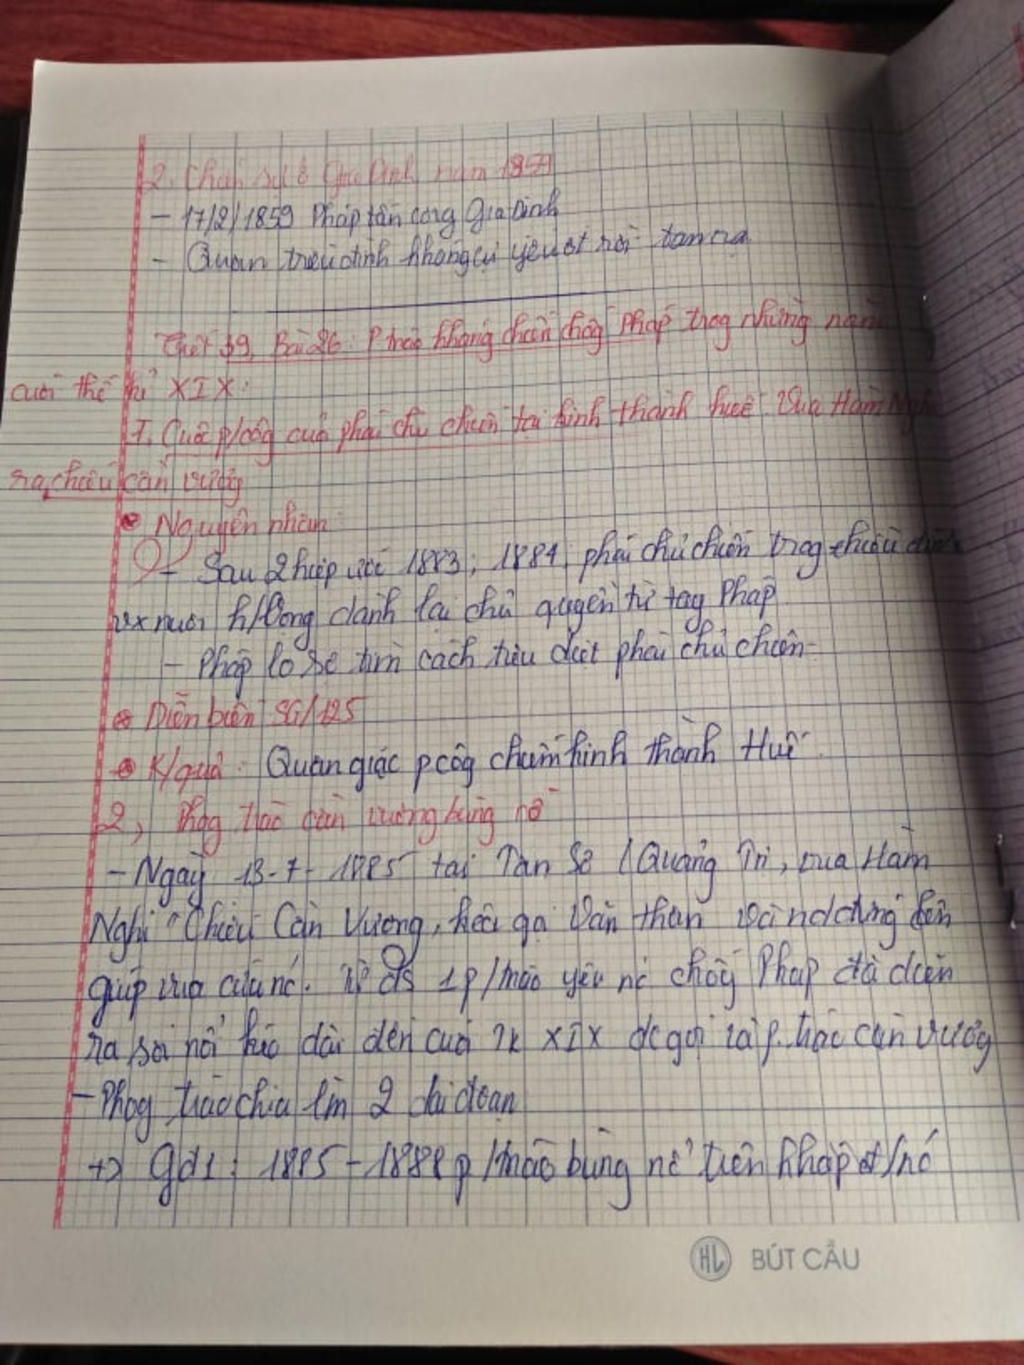 2. Chiến sự ở Gia Định năm 1859
- 17/2/1859 Pháp tấn công Gia Định
- Quan triều đình kháng cự yếu ớt rồi tan rã
Tiết 39, Bài 26: P trào kháng chiến chốg Pháp trog những năm
cuối thế kỉ XIX:
I. Cuộc p/côg của phái chủ chiến tại kinh thành huế Vua Hàm Nghi
ra chiếu cần vươg
Nguyên nhân:
- Sau 2 hiệp ước 1883, 1884, phái chủ chiến trog triều đình
h/vọng dành lại chủ quyền từ tay Pháp
- Pháp lo sợ tìm cách tiêu diệt phái chủ chiến
Diễn biến SG/125
K/quả: Quân giặc p côg chiếm kinh thành Huế.
2, Phog trào cần vương bùng nổ
- Ngày 13-7-1885 tại Tân Sở (Quảng Trị, vua Hàm
Nghi "Chiếu Cần Vương, kêu gọi Văn thân và nd đứng lên
giúp vua cứu nc. 1 p/trào yêu nc chốg Pháp đã diễn
ra sôi nổi kéo dài đến cuối TK XIX đc gọi là p.trào cần vươg
- Phog trào chia làm 2 giai đoạn
+> Gđ1: 1885-1888 p/trào bùng nổ trên khắp
BÚT CẦU